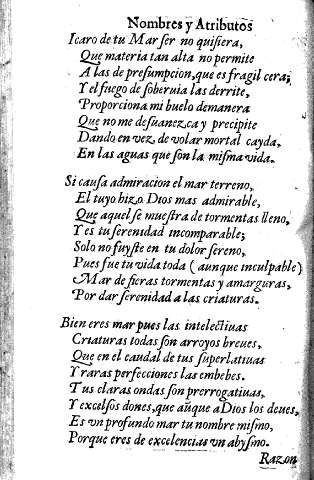 Nombres y Atributos
Icaro de tu Mar ser no quisiera,
Que materia tan alta no permite
A las de presumpcion, que es fragil cera;
Y el fuego de soberuia las derrite,
Proporciona mi buelo de manera
Que no me desuanezca y precipite
Dando en vez de volar mortal cayda,
En las aguas que son la misma vida.
Si causa admiracion el mar terreno,
El tuyo hizo Dios mas admirable,
Que aquel se muestra de tormentas lleno,
Y es tu serenidad incomparable;
Solo no fuyste en tu dolor sereno,
Pues fue tu vida toda (aunque inculpable)
Mar de fieras tormentas y amarguras,
Por dar serenidad a las criaturas.
Bien eres mar pues las intelectiuas
Criaturas todas son arroyos breues,
Que en el caudal de tus superlatiuas
Y raras perfecciones las embebes.
Tus claras ondas son prerrogatiuas,
Y excelsos dones, que aũque a Dios los deues,
Es vn profundo mar tu nombre mismo,
Porque eres de excelencias vn abysmo.
Razon